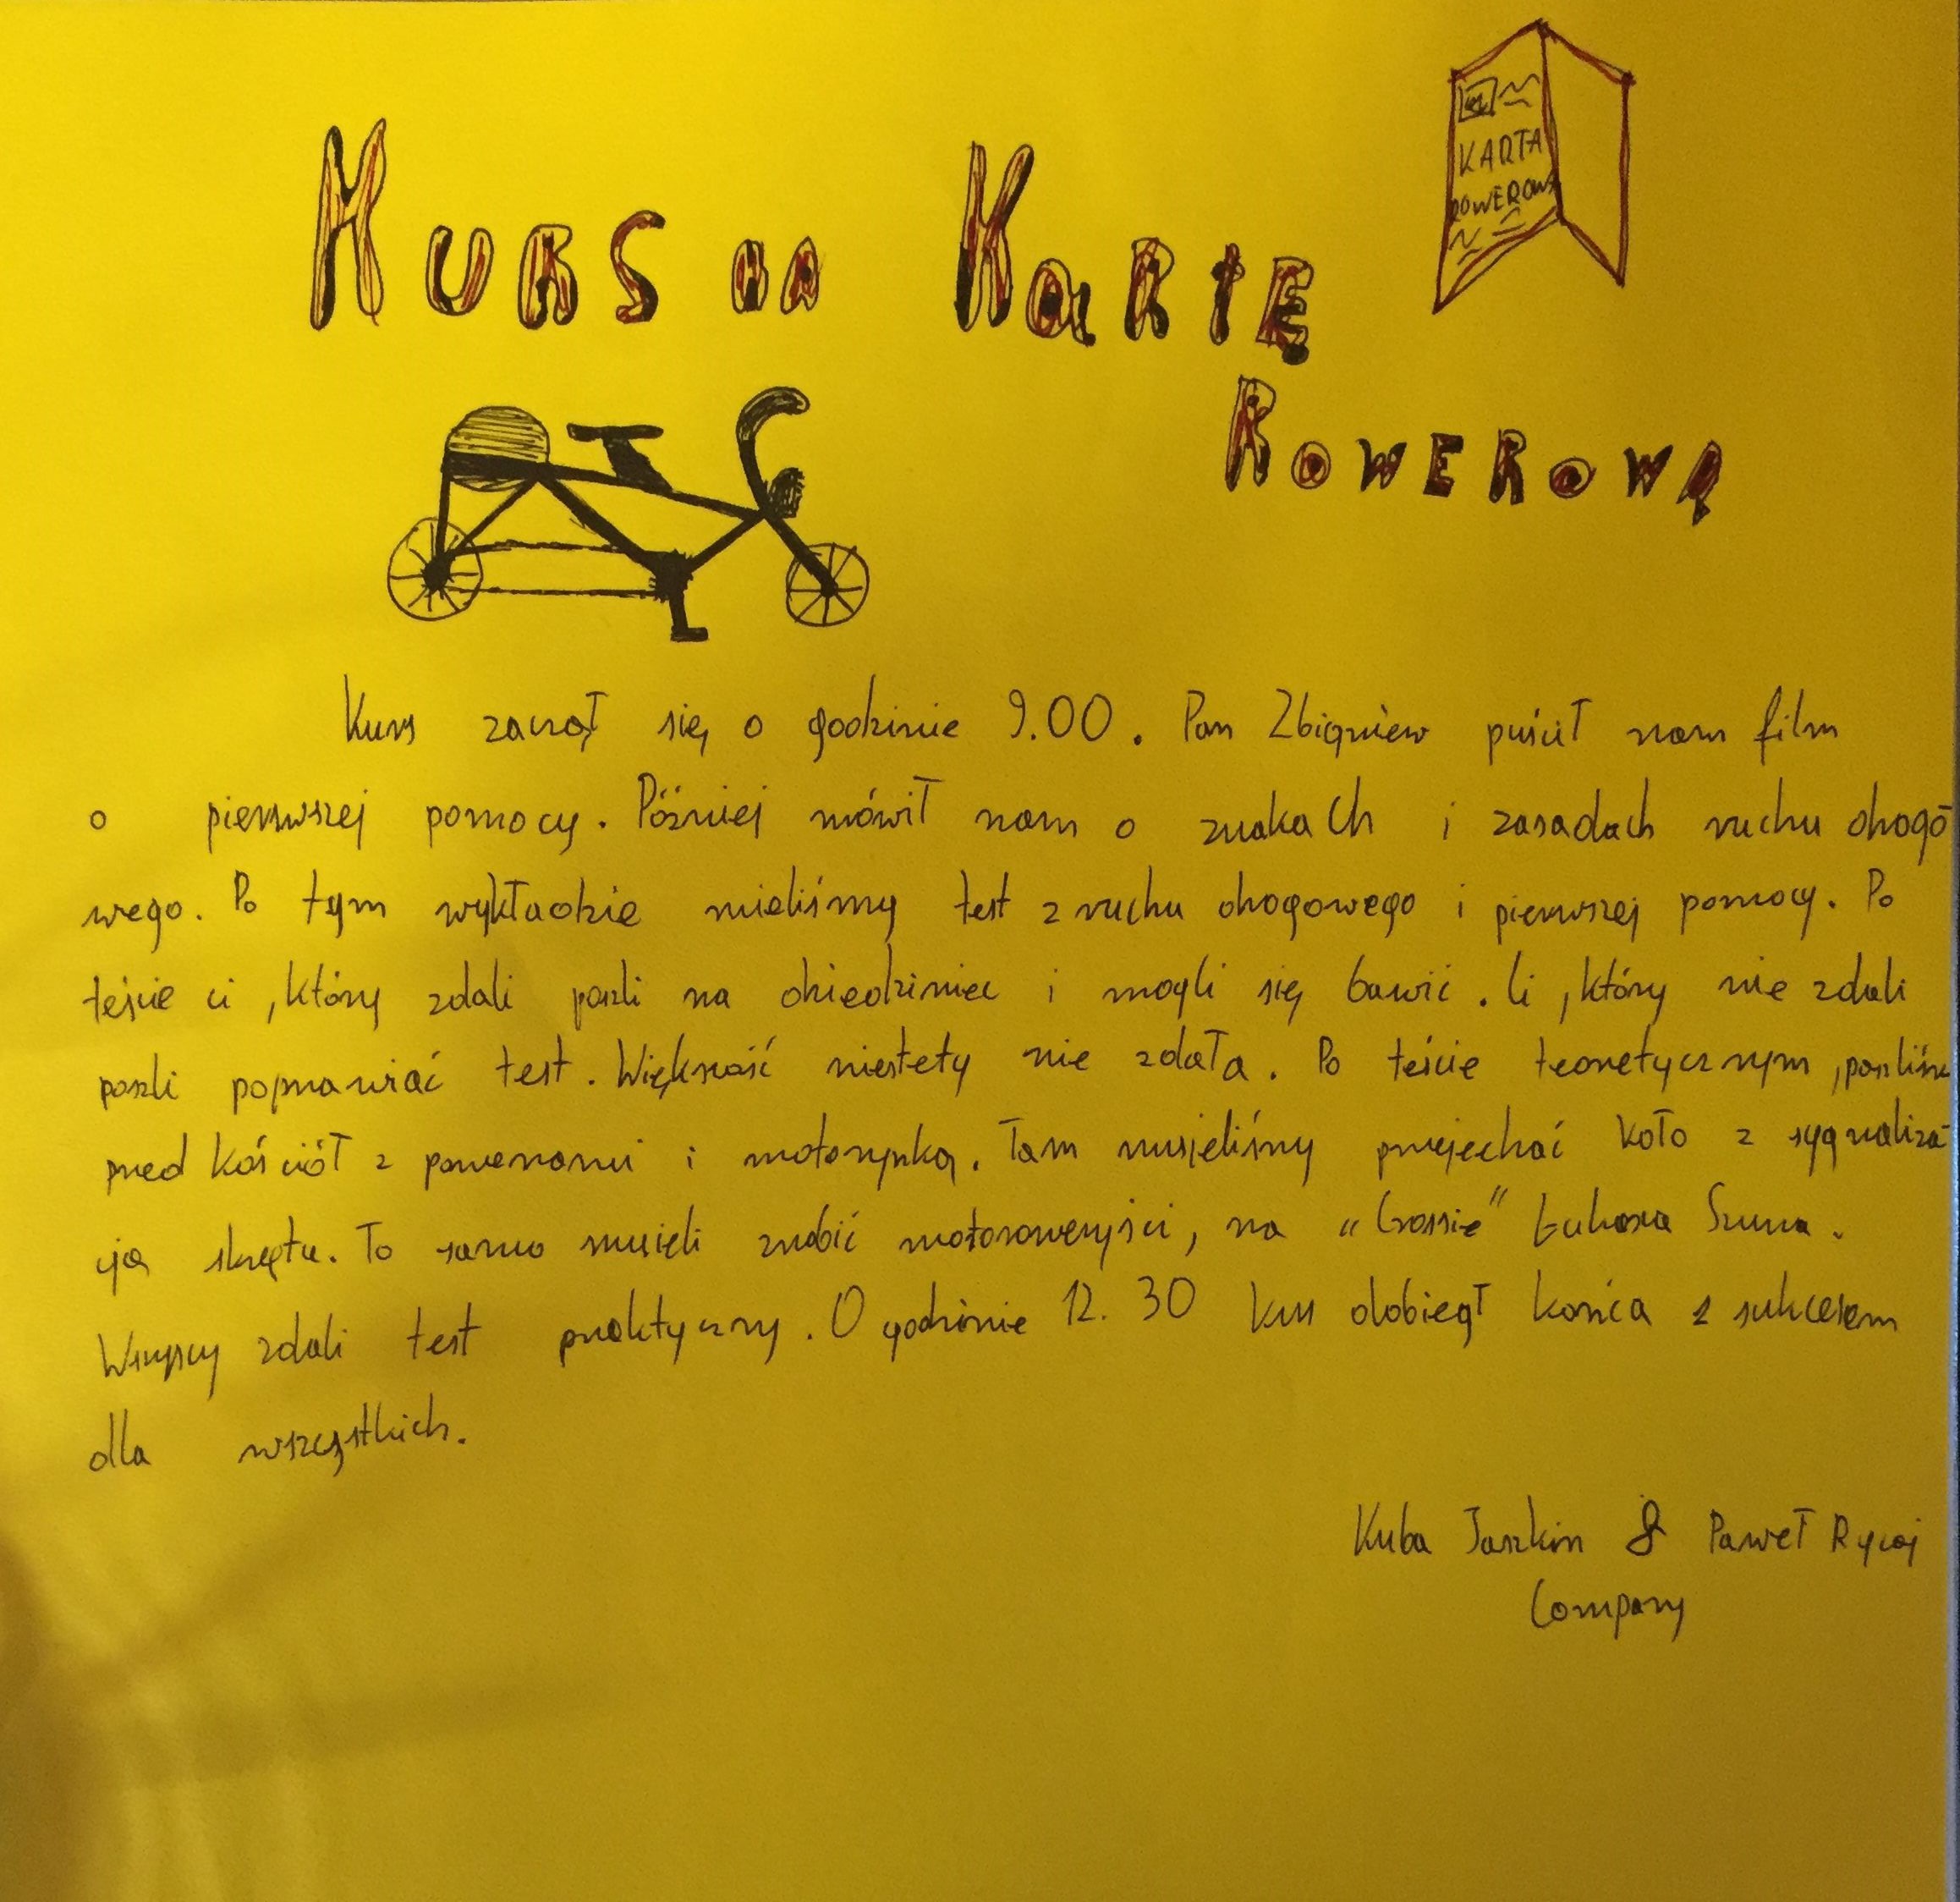 KARTA
ROWEROWA
Kurs na Kartę
Rowerową
Kurs zaczął się o godzinie 9.00. Pan Zbigniew puścił nam film
o pierwszej pomocy. Później mówił nam o znakach i zasadach ruchu drogo-
wego. Po tym wykładzie mieliśmy test z ruchu drogowego i pierwszej pomocy. Po
teście ci, którzy zdali poszli na dziedziniec i mogli się bawić. Ci, którzy nie zdali
poszli poprawiać test. Większość niestety nie zdała. Po teście teoretycznym, poszliśmy
przed kościół z rowerami i motorynką. Tam musieliśmy przejechać koło z sygnaliza-
cją skrętu. To samo musieli zrobić motorowerzyści, na "Crossie" Łukasza
Wszyscy zdali test praktyczny. O godzinie 12.30 kurs dobiegł końca z sukcesem
dla wszystkich.
Kuba Jaszkin & Paweł Rycaj
Company